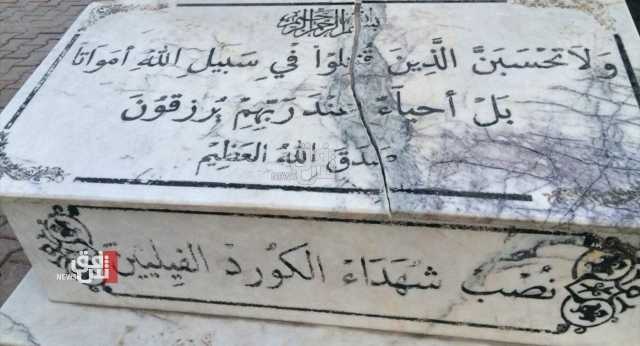 بسم الله الرحمن الرحيم
وَلَا تَحْسَبَنَّ الَّذِينَ قُتِلُوا۟ فِي سَبِيلِ اللَّهِ أَمْوَاتًا
بَلْ أَحْيَآءٌ عِنْدَ رَبِّهِمْ يُرْزَقُونَ
صَدَقَ اللهُ العَظِيْمِ
نُصْبُ شُهَدَاءُ الكُورد الفيليين
شفق
NEWS